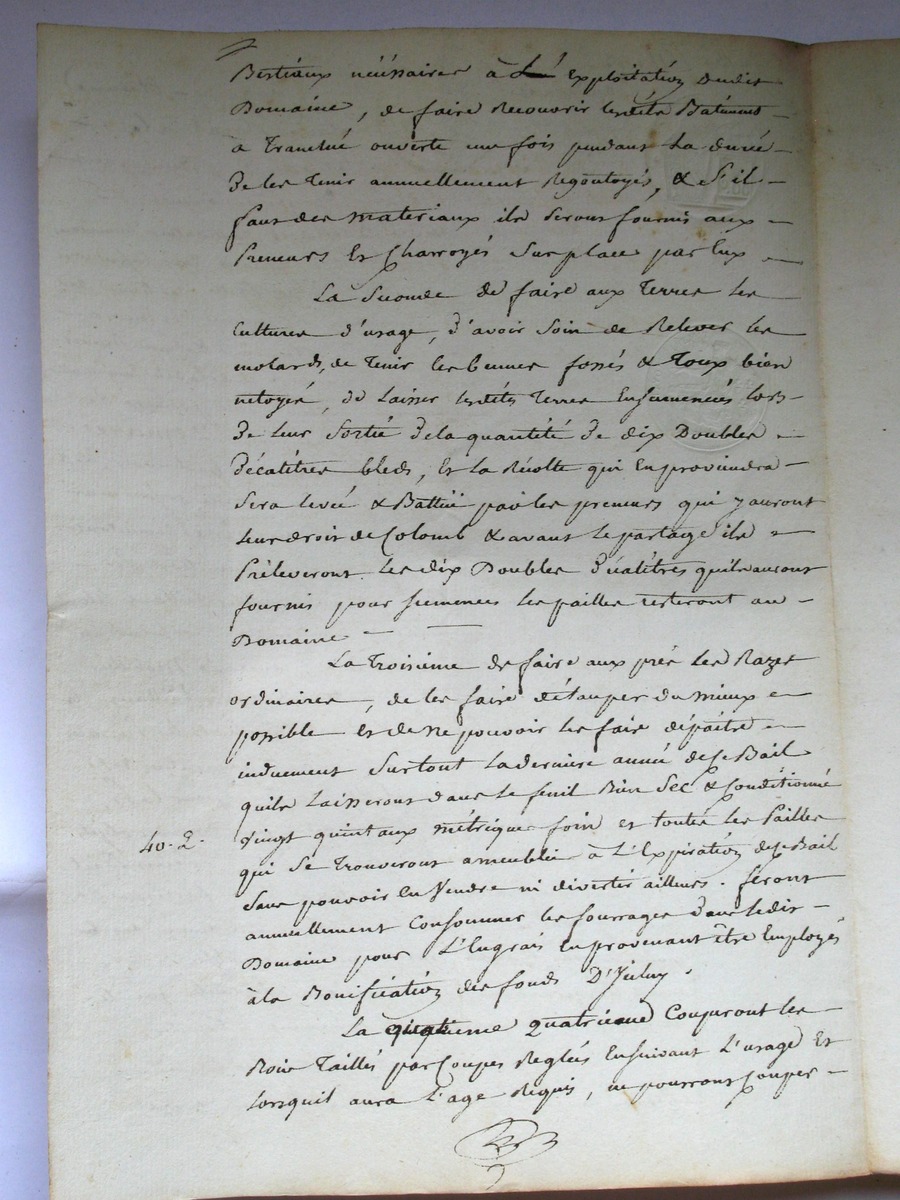 Bestiaux nécéssaires à L' Exploitation Dudit
Domaine, de faire Recouvrir lesdits Batiments
à Tranché ouverte une fois pendant La durée
De les Tenir annuellement Regoutoyés, & S'il
faut des materiaux ils seront fournis aux
Preneurs Et Charroyés Sur place par Eux
La Seconde de faire aux Terres Les
Cultures d'usage, D'avoir Soin de Relever les
molards, de Tenir les Bennes fossés & Toux bien
netoyés, de Laisser lesdits Terres Ensemencées lors
De Leur Sortie de la quantité De dix Doubles
Décalitres bleds, Et La Récolte qui En proviendra
Sera levée & Battüe par les preneurs qui y auront
Leur droit de Colomb & avant le partage ils
Préleveront Les dix Doubles Décalitres quils auront
fournis pour semences les pailles resteront au
Domaine
La Troisieme de faire aux prés les Razes
ordinaires, de les faire détauper du mieux
possible et de ne pouvoir les faire dépaitre
induement Surtout La derniere année de Ce Bail
quils Laisseront dans Le fenil Bien Sec & Conditionné
40-2-
Vingt quintaux métriques foin et toutes les Pailles
qui Se Trouveront ameublie à L'Expiration de Ce Bail
Sans pouvoir En Vendre ni divertir ailleurs. feront
annuellement Consommer les fourrages dans ledit
Domaine pour L'Engrais En provenant être Employés
à la Bonification des fonds D'Iceluy.
La quatrieme Couperont les
Bois Taillés par Coupes Reglées Ensuivant L'usage Et
Lorsquil aura L'age Requis, ne pourront Couper